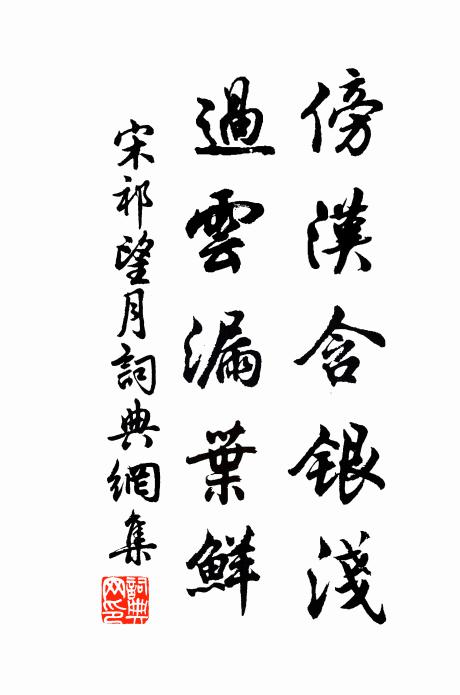 傍漢含銀淺
過雲漏葉鮮
宋祁望月詞典網集
詞典网印